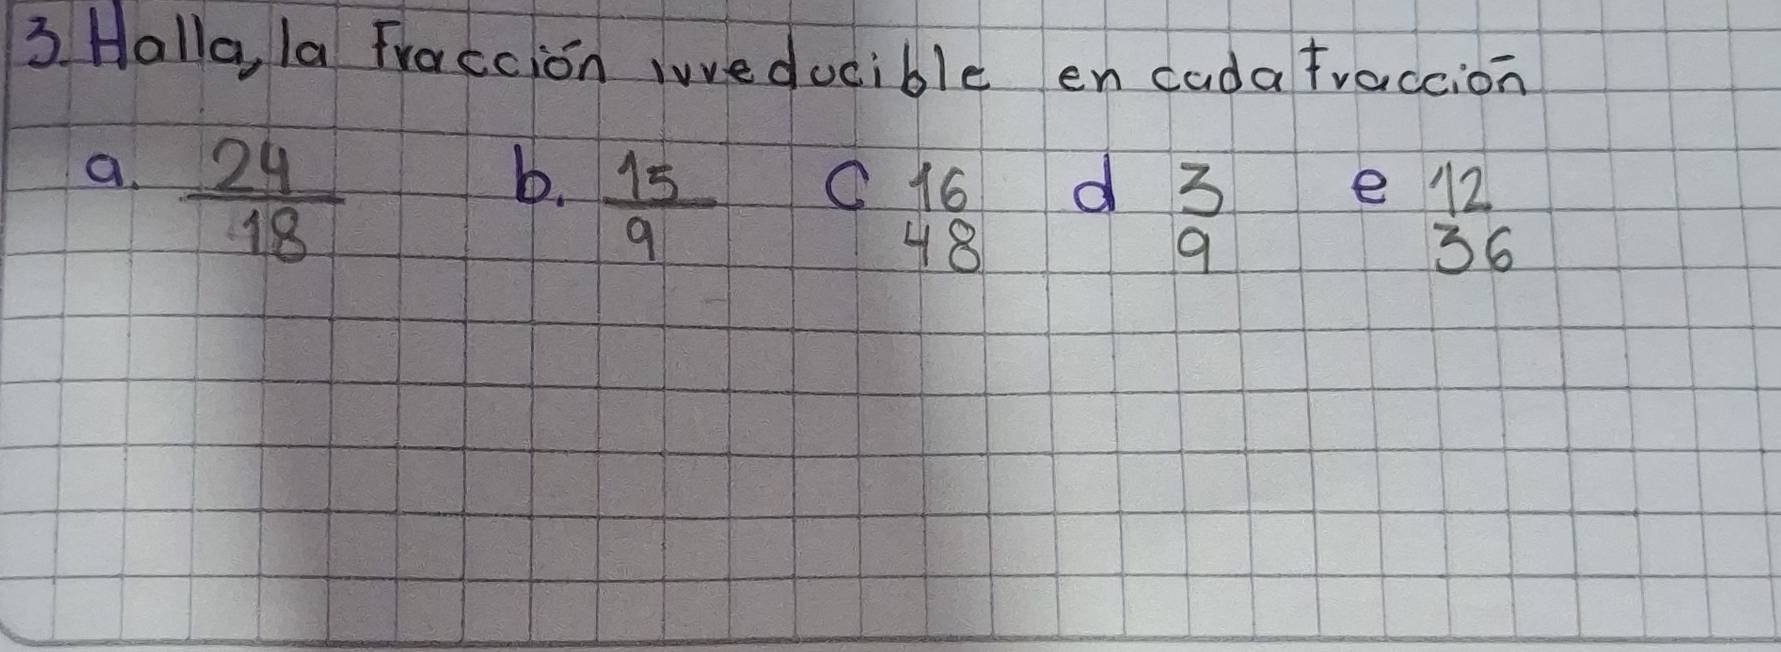 3. Halla, la Fracción irreducible en cada fracción
a. 24/18 b. 15/9 c 16/48 d 3/9 e 12/36